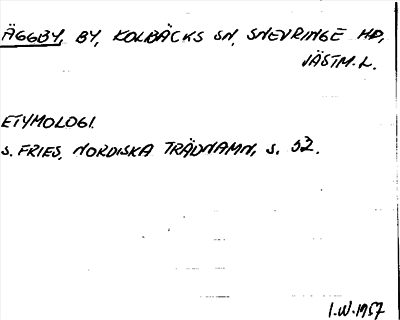 ÄGGBY, BY, KOLBÄCKS SN, SNEVRINGE HD,
VÄSTM. L.
ETYMOLOGI.
S. FRIES, NORDISKA TRÄDNAMN, S. 52.
I.W. 1957